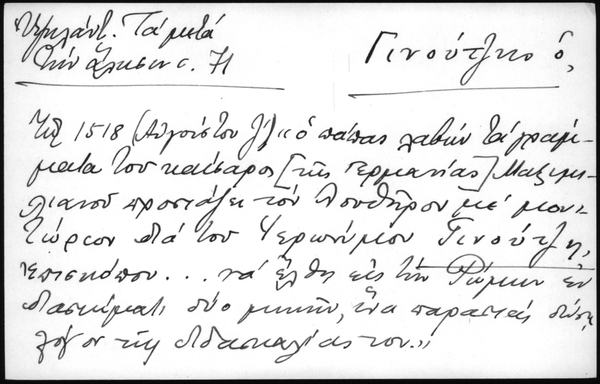 Ὑψηλάντ. Τὰ μετὰ
τὴν ἅλωσιν σ. 71
Γινούτζης ὁ,
Τῷ 1518 (Αὐγούστου ζ΄) «ὁ πάπας λαβὼν τὰ γράμ-
ματα τοῦ καίσαρος [τῆς Γερμανίας] Μαξιμι-
λιανοῦ προστάζει τὸν Λουθῆρον μὲ μονι-
τώριον διὰ τοῦ Ἱερωνύμου Γινούτζη,
ἐπισκόπου... νὰ ἔλθῃ εἰς τὴν Ῥώμην ἐν
διαστήματι δύο μηνῶν, ἵνα παραστὰς δώσῃ
λόγον τῆς διδασκαλίας του.»